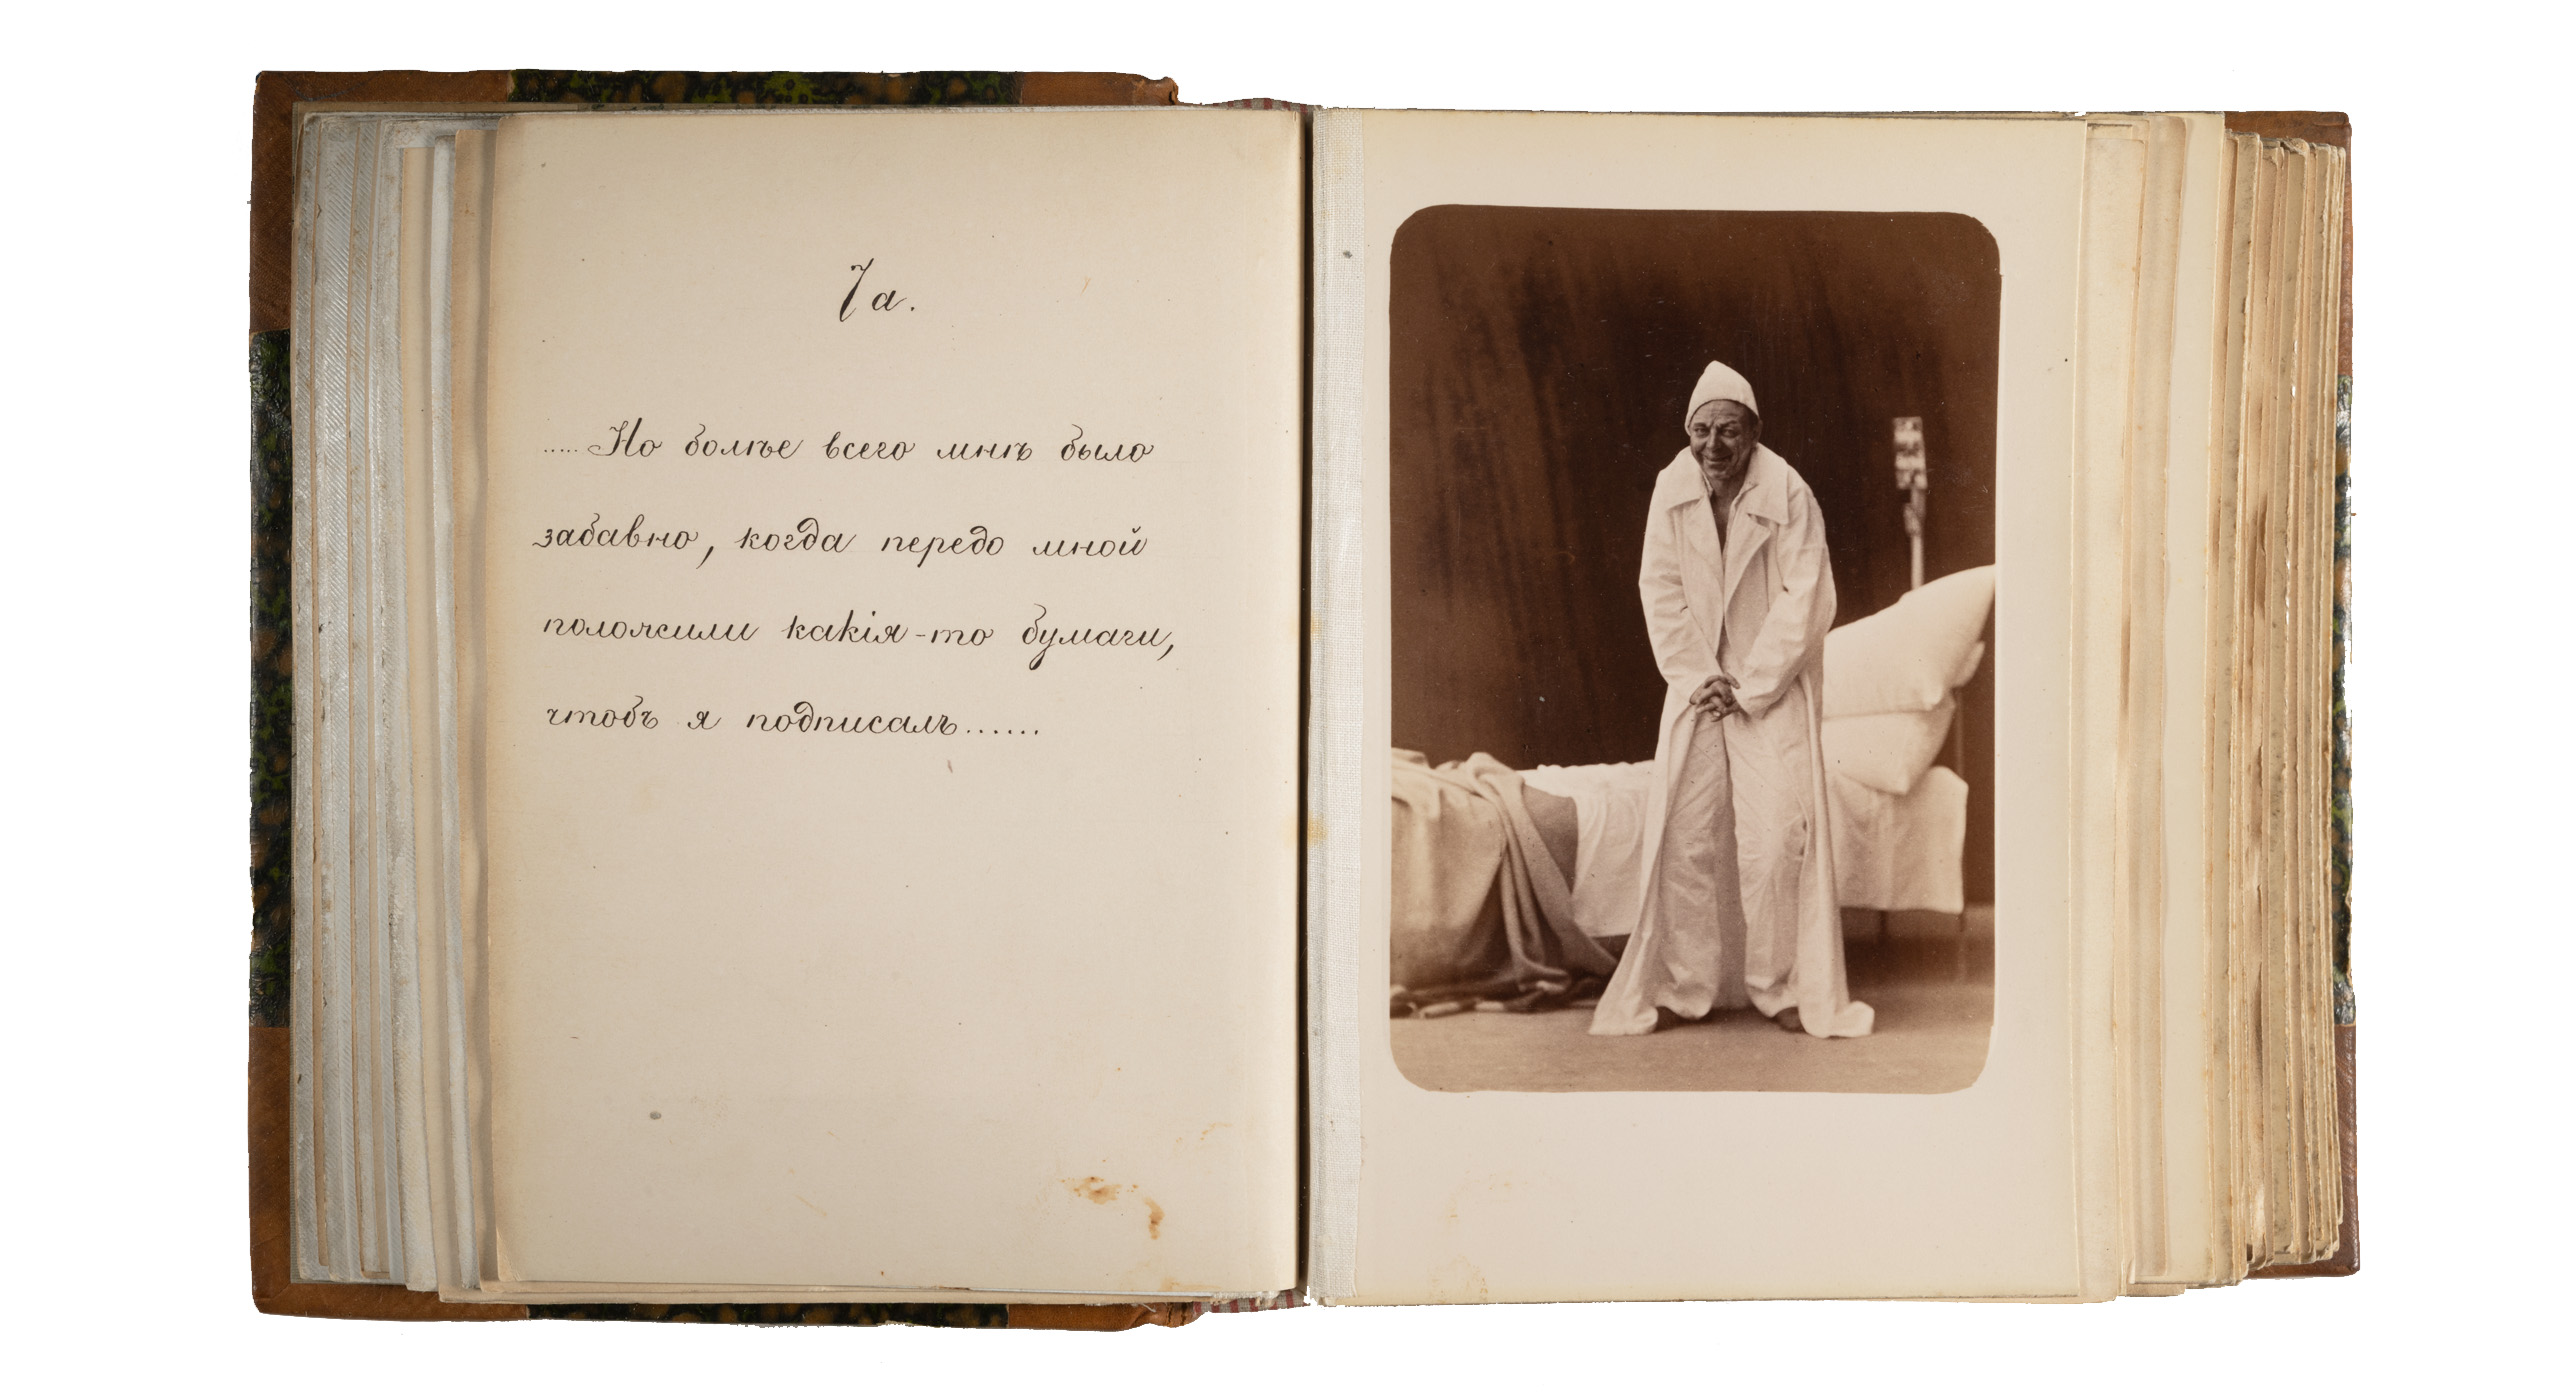 7а.
.....Но болѣе всего мнѣ было
забавно, когда передо мной
положили какія-то бумаги,
чтобъ я подписалъ......